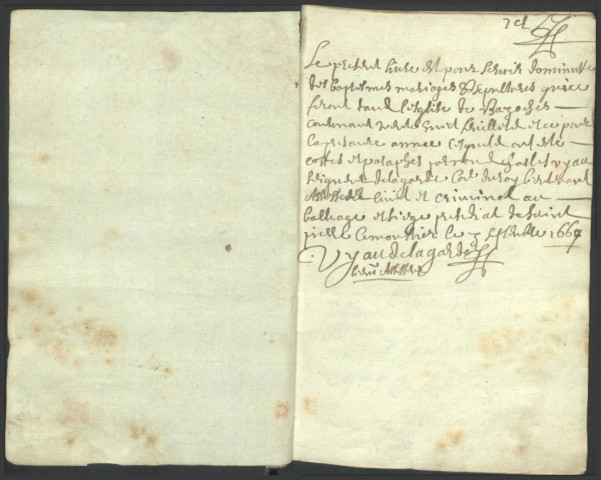 Le present livre est pour servir de minutte
des baptesmes mariages & sepultures qui se
feront dans l'eglise de Bazoches
contenant feuillets et ce pour
la presente annee lesquels ont este
cottes et paraphes par nous Charles vyau
seigneur de lagarde Con.er du roy lieutenant
civil et criminel au
bailliage et siege presidial de saint
pierre le moustier le 7 1667
Vyau de lagarde